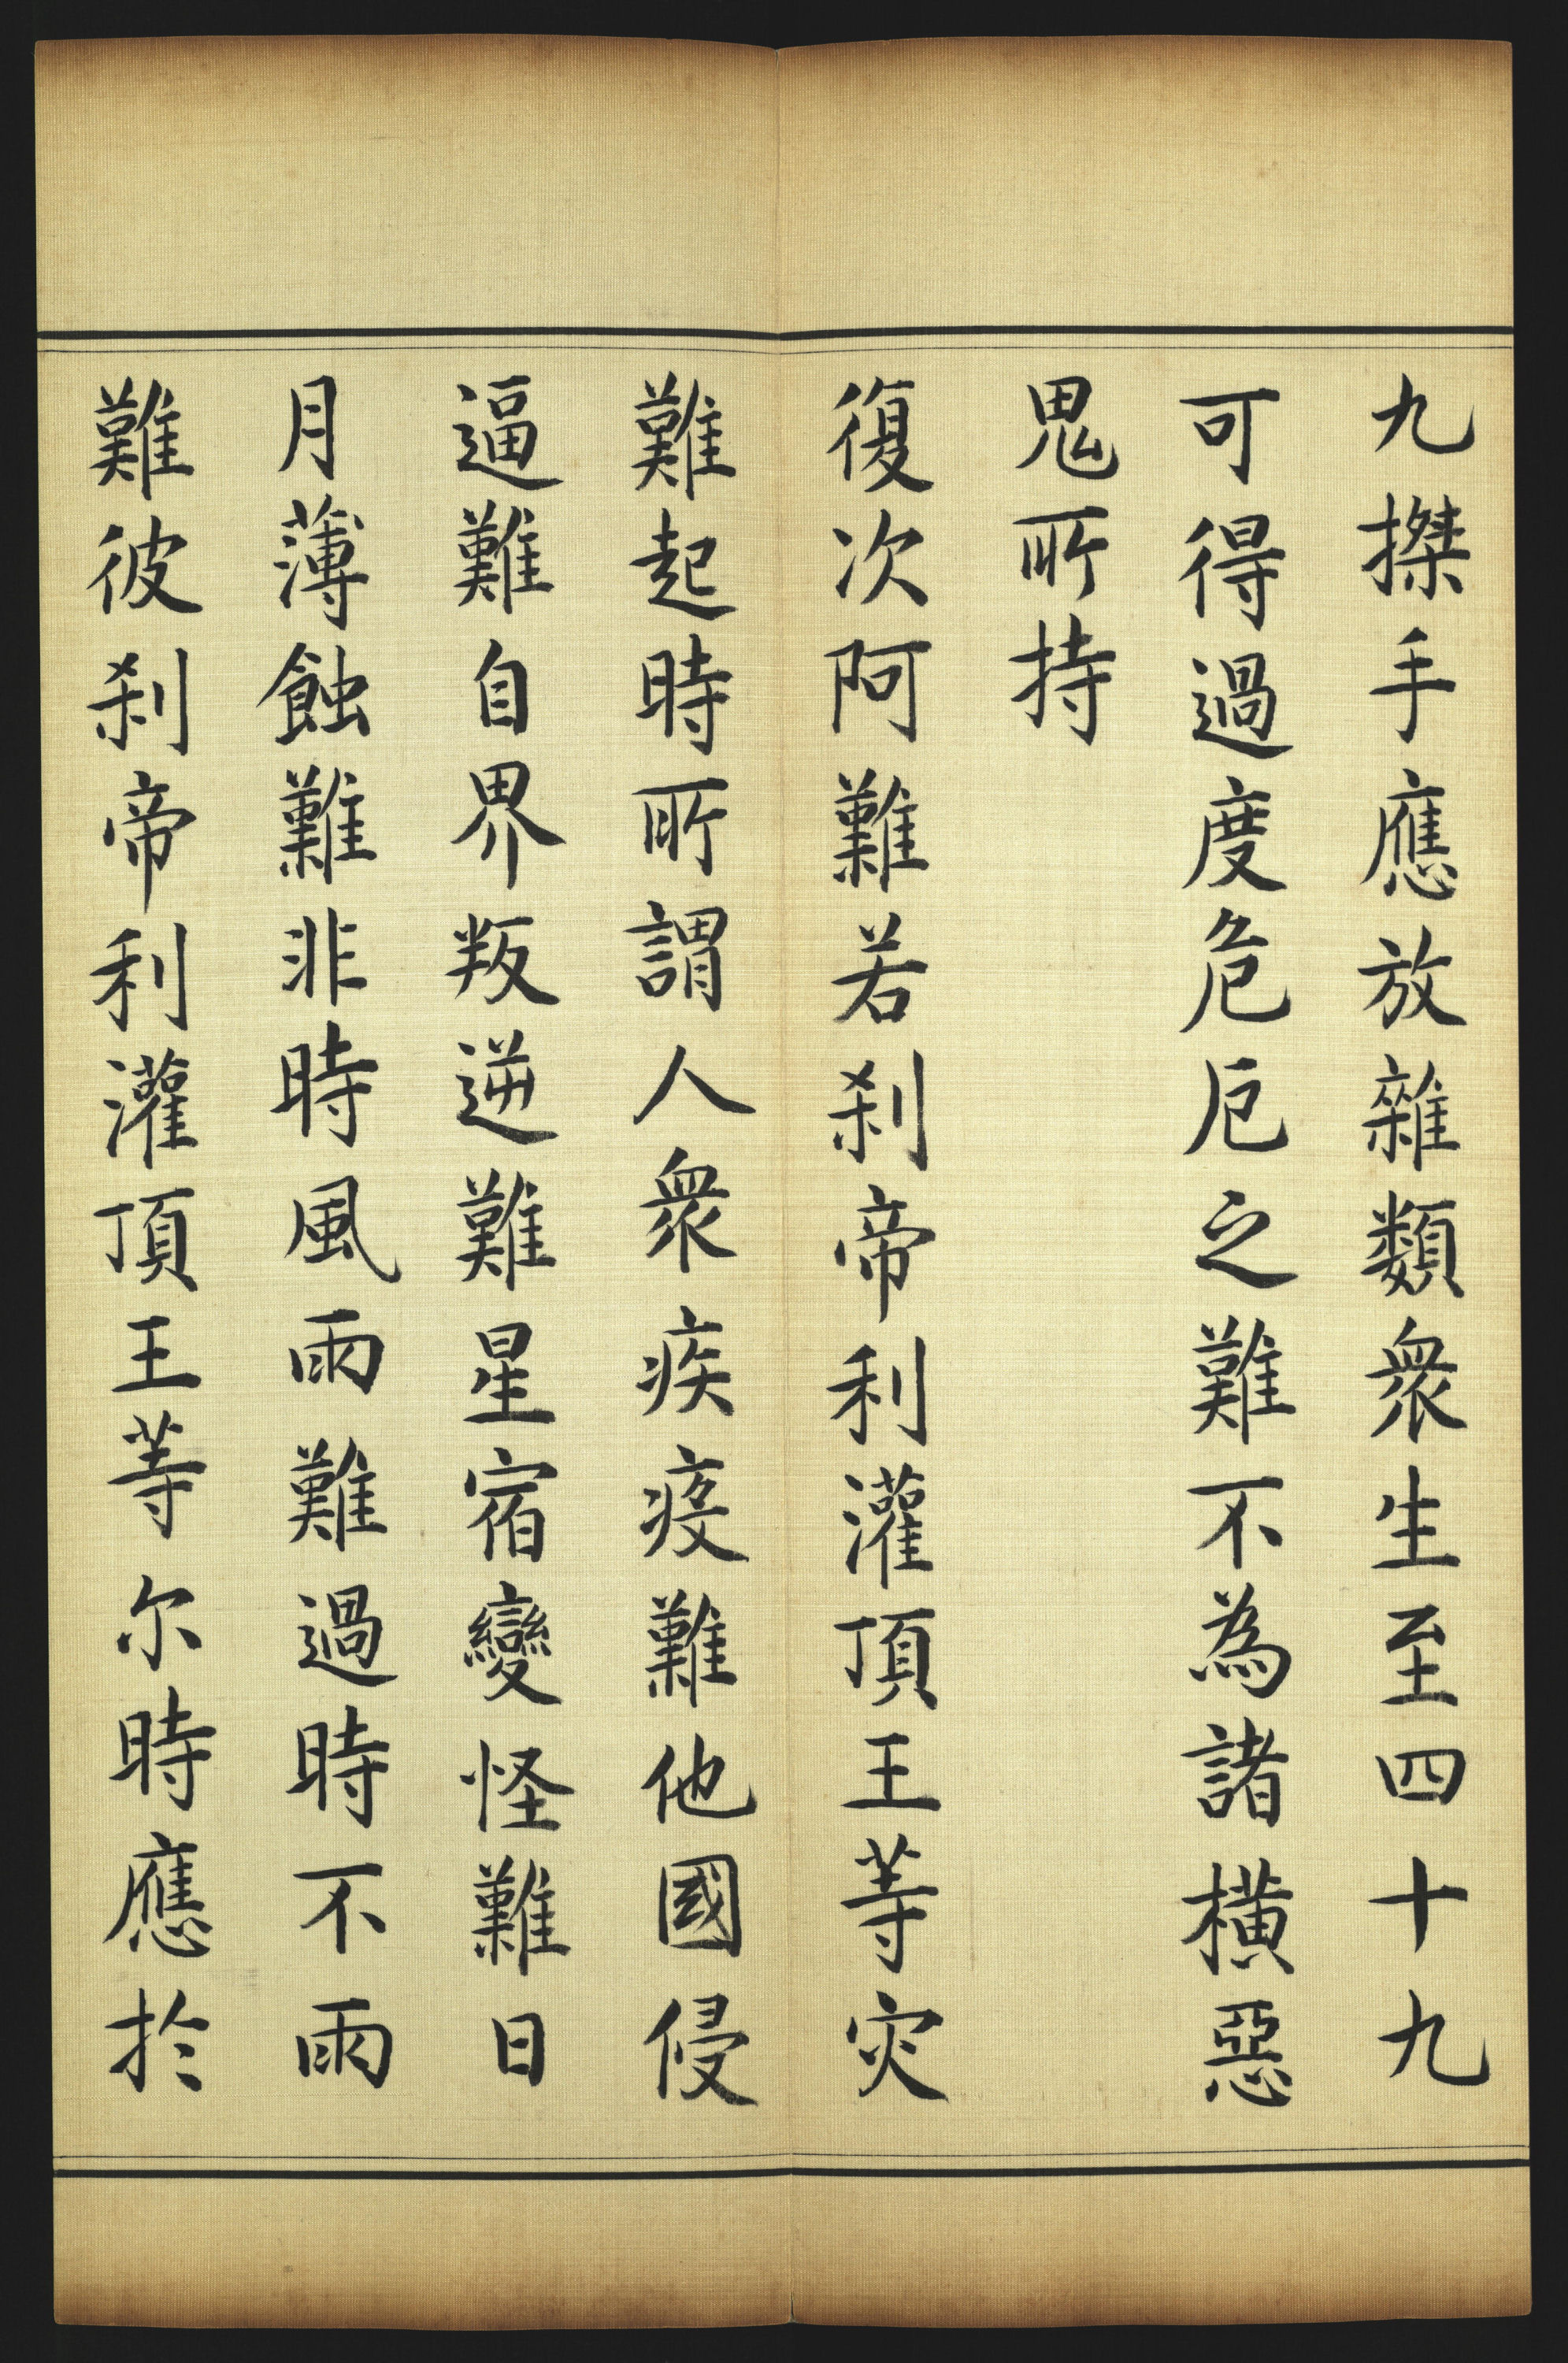 九搩手應放雜類衆生至四十九
可得過度危厄之難不為諸横惡
鬼所持
復次阿難若刹帝利灌頂王等灾
難起時所謂人衆疾疫難他國侵
逼難自界叛逆難星宿變怪難日
月薄蝕難非時風雨難過時不雨
難彼刹帝利灌頂王等尔時應於